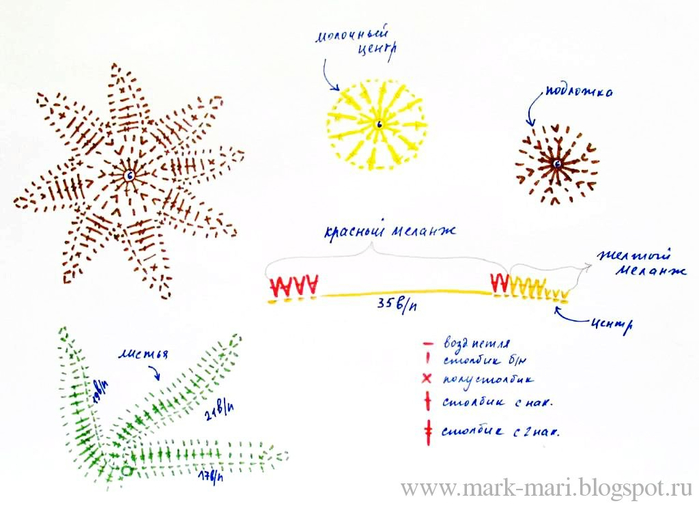 молочный
центр
6
6
подложка
6
красный меланж
желтый
меланж
35 в/п
центр
листья
19в/п
21в/п
17в/п
возд петля
столбик б/н
полустолбик
столбик с нак.
столбик с 2 нак.
www.mark-mari.blogspot.ru